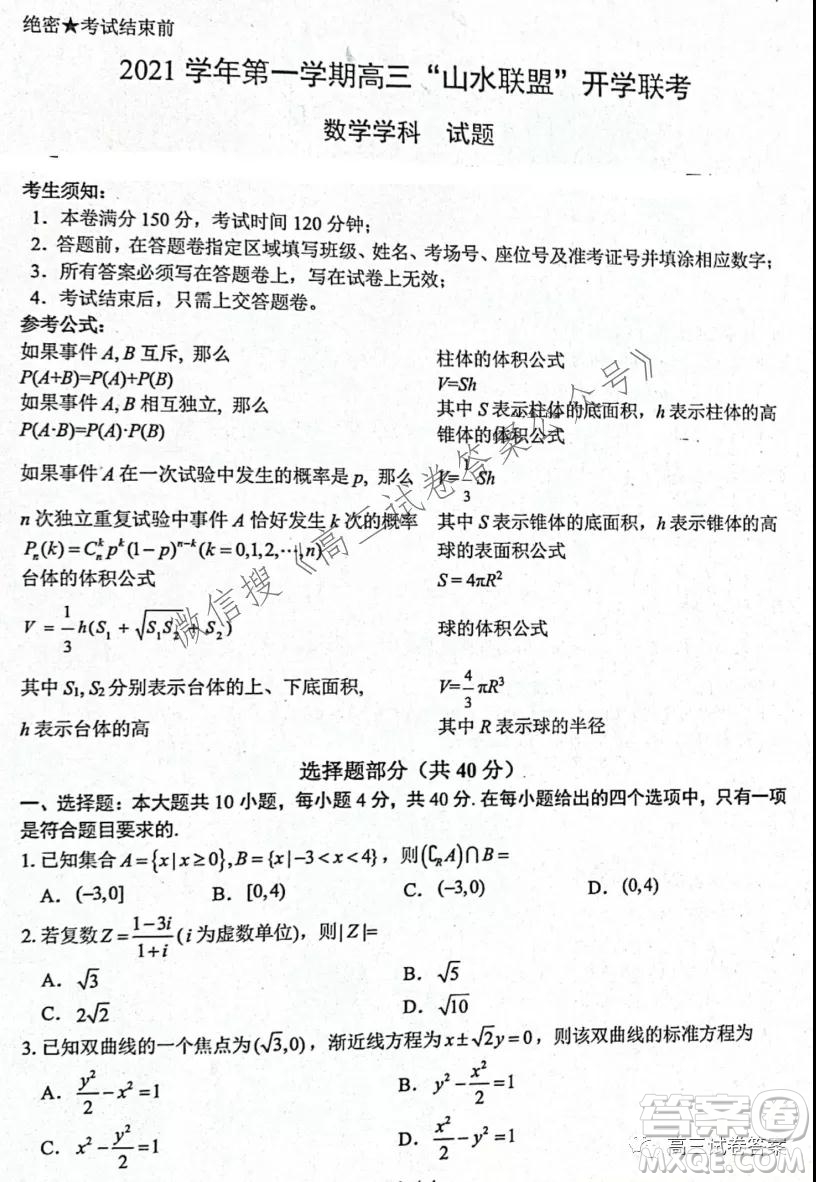 绝密★考试结束前
2021 学年第一学期高三“山水联盟”开学联考
数学学科 试题
考生须知:
1. 本卷满分 150 分，考试时间 120 分钟；
2. 答题前，在答题卷指定区域填写班级、姓名、考场号、座位号及准考证号并填涂相应数字；
3. 所有答案必须写在答题卷上，写在试卷上无效；
4. 考试结束后，只需上交答题卷。
参考公式:
如果事件 A, B 互斥, 那么
P(A+B)=P(A)+P(B)
如果事件 A, B 相互独立, 那么
P(A·B)=P(A)·P(B)
如果事件 A 在一次试验中发生的概率是 p, 那么
n 次独立重复试验中事件 A 恰好发生 k 次的概率
Pₙ(k)=Cₙᵏpᵏ(1−p)ⁿ⁻ᵏ(k=0,1,2,⋯,n)
台体的体积公式
V = 1/3 h(S₁+√(S₁S₂)+S₂)
其中 S₁, S₂ 分别表示台体的上、下底面积,
h 表示台体的高
柱体的体积公式
V=Sh
其中 S 表示柱体的底面积，h 表示柱体的高
锥体的体积公式
V=1/3 Sh
其中 S 表示锥体的底面积，h 表示锥体的高
球的表面积公式
S=4πR²
球的体积公式
V=4/3 πR³
其中 R 表示球的半径
选择题部分（共 40 分）
一、选择题：本大题共 10 小题，每小题 4 分，共 40 分. 在每小题给出的四个选项中，只有一项
是符合题目要求的.
1. 已知集合 A={x|x≥0}, B={x|−3<x<4}，则(∁ᴿA)∩B=
A. (−3,0] B. [0,4) C. (−3,0) D. (0,4)
2. 若复数 Z=(1−3i)/(1+i) (i 为虚数单位)，则|Z|=
A. √3 B. √5
C. 2√2 D. √10
3. 已知双曲线的一个焦点为(√3,0)，渐近线方程为 x±√2y=0，则该双曲线的标准方程为
A. y²/2−x²=1 B. y²−x²/2=1
C. x²−y²/2=1 D. x²/2−y²=1
微信搜《高三试卷答案公众号》
答案圈
高三试卷答案
MXQE.COM